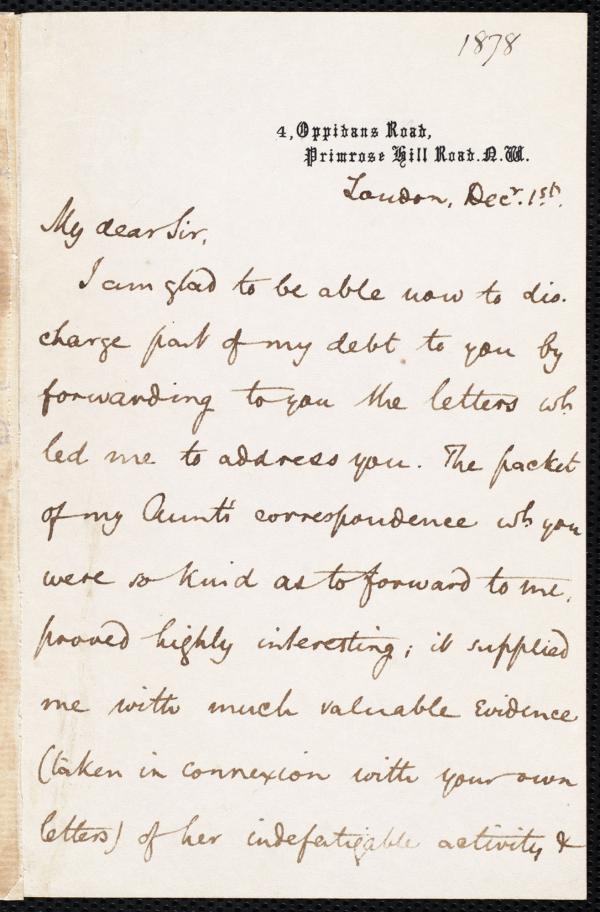 1878
4, Oppidans Road,
Primrose Hill Road. N.W.
London, Decr. 1st.
My dear Sir,
I am glad to be able now to dis-
charge part of my debt to you by
forwarding to you the letters wh
led me to address you. The packet
of my Aunt's correspondence wh you
were so kind as to forward to me,
proved highly interesting; it supplied
me with much valuable evidence
(taken in connexion with your own
letters) of her indefatigable activity &